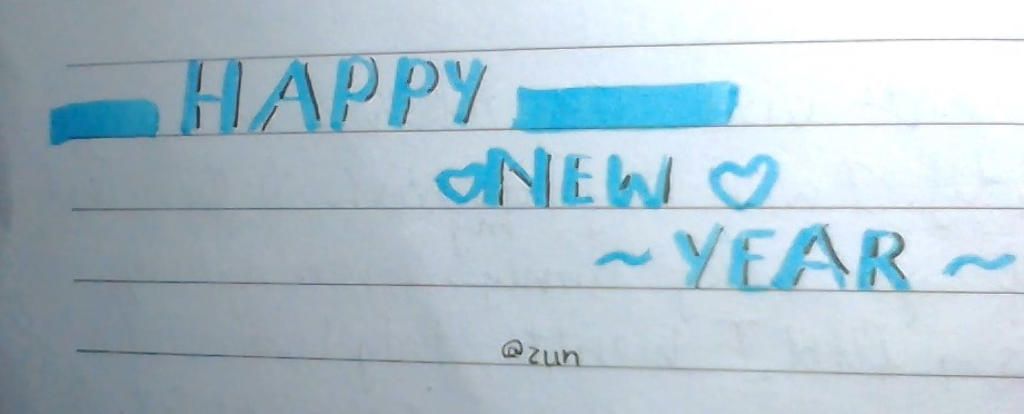 HAPPY
NEW
~ YEAR ~
@zun